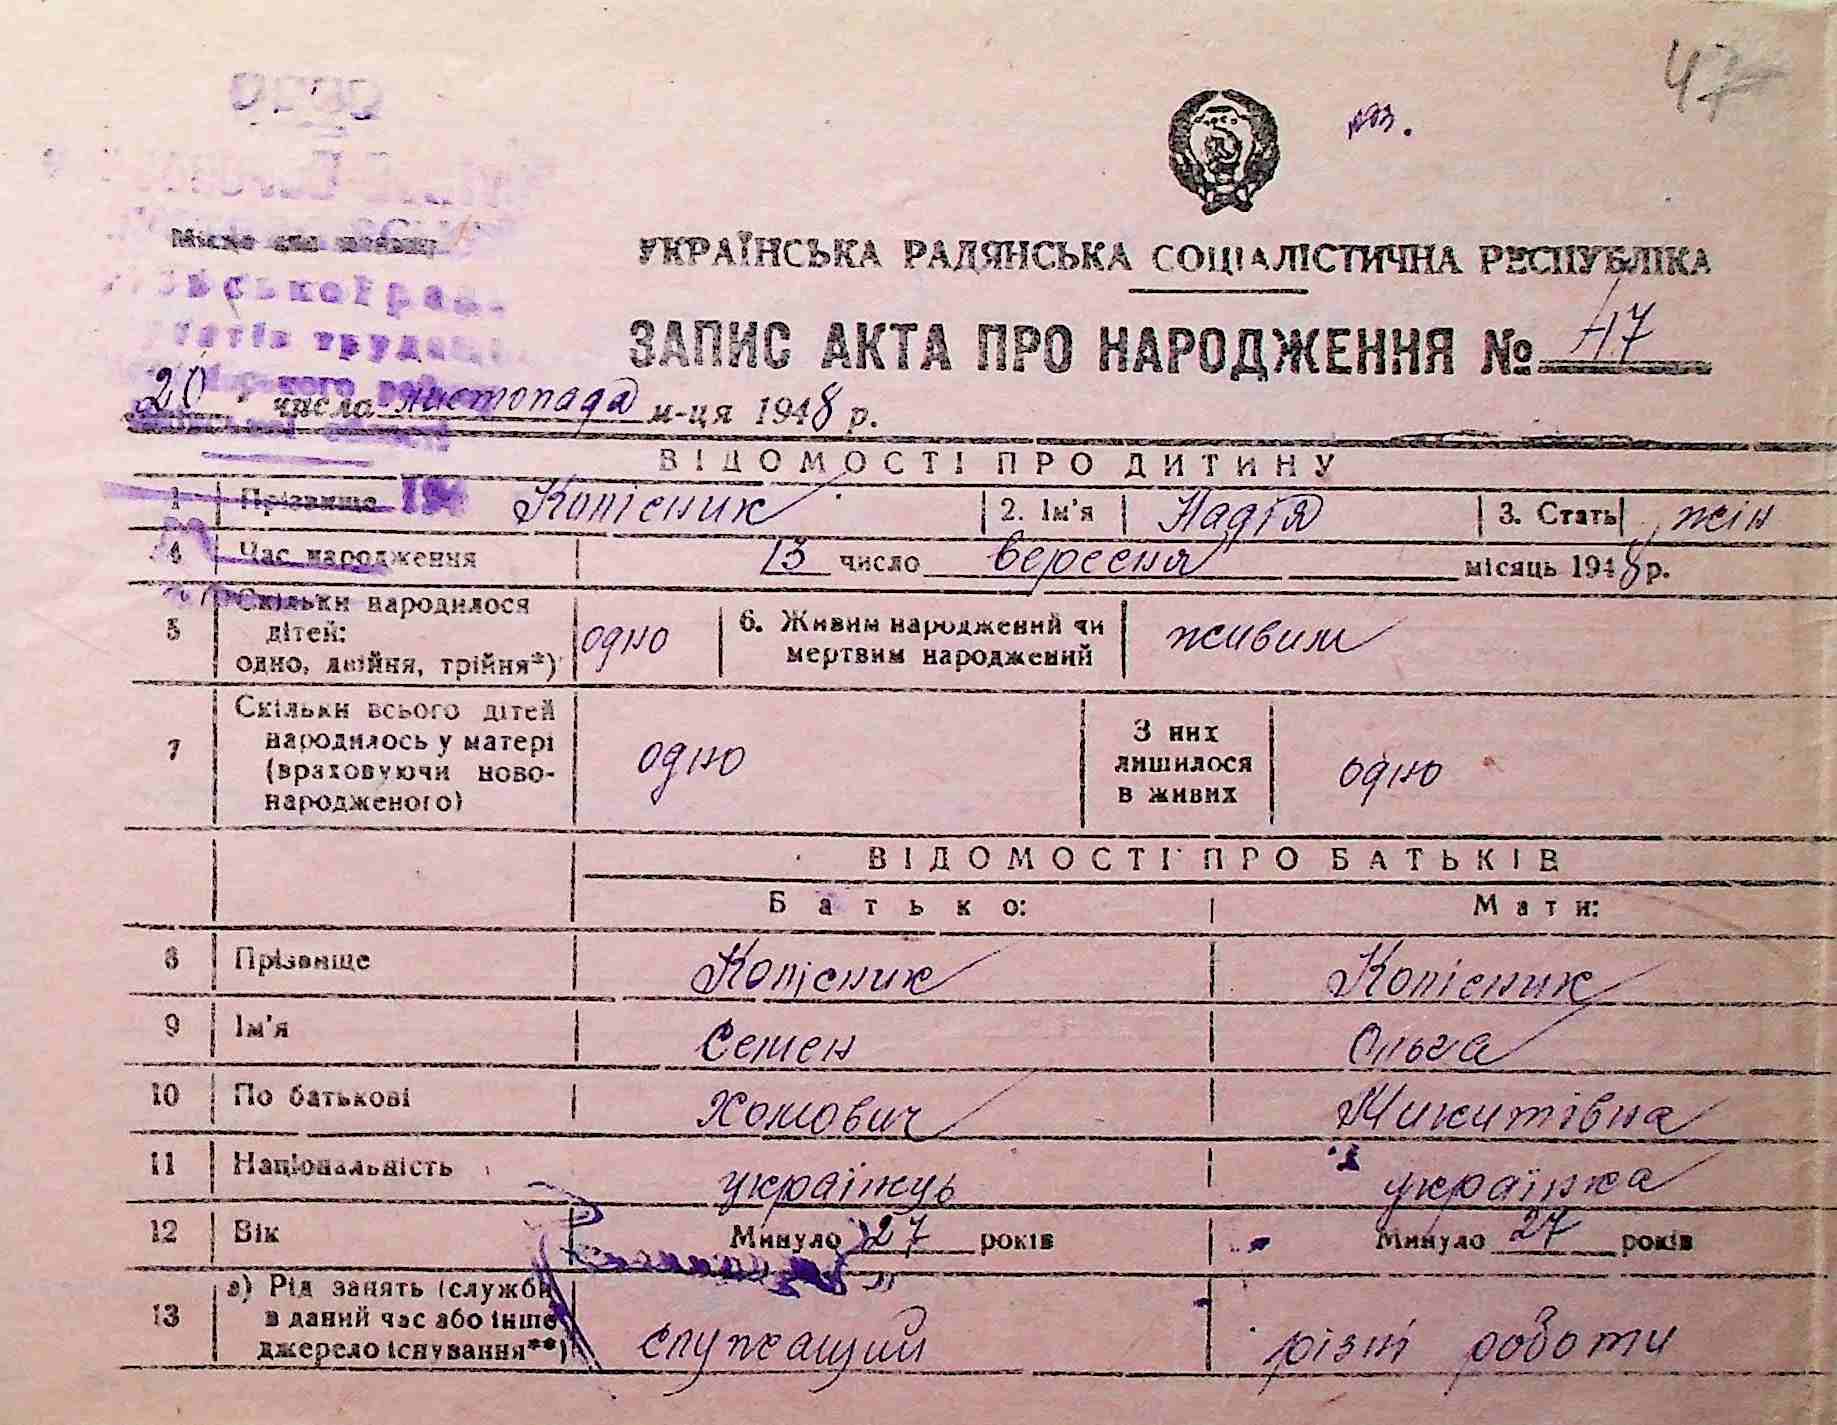 47
УКРАЇНСЬКА РАДЯНСЬКА СОЦІАЛІСТИЧНА РЕСПУБЛІКА
ЗАПИС АКТА ПРО НАРОДЖЕННЯ № 47
20 числа листопада м-ця 1948 р.
ВІДОМОСТІ ПРО ДИТИНУ
1 Прізвище 194 Копісник 2. Ім'я Надія 3. Стать жін
4 Час народження 13 число вересня місяць 1948 р.
5 Скільки народилося дітей: одно, двійня, трійня*) одно 6. Живим народжений чи мертвим народжений живим
7 Скільки всього дітей народилось у матері (враховуючи новонародженого) одно З них лишилося в живих одно
ВІДОМОСТІ ПРО БАТЬКІВ
Батько: Мати:
8 Прізвище Копісник Копісник
9 Ім'я Семен Ольга
10 По батькові Хомович Микитівна
11 Національність українець українка
12 Вік Минуло 27 років Минуло 27 років
13 а) Рід занять (служби в даний час або інше джерело існування**) служащий різні роботи